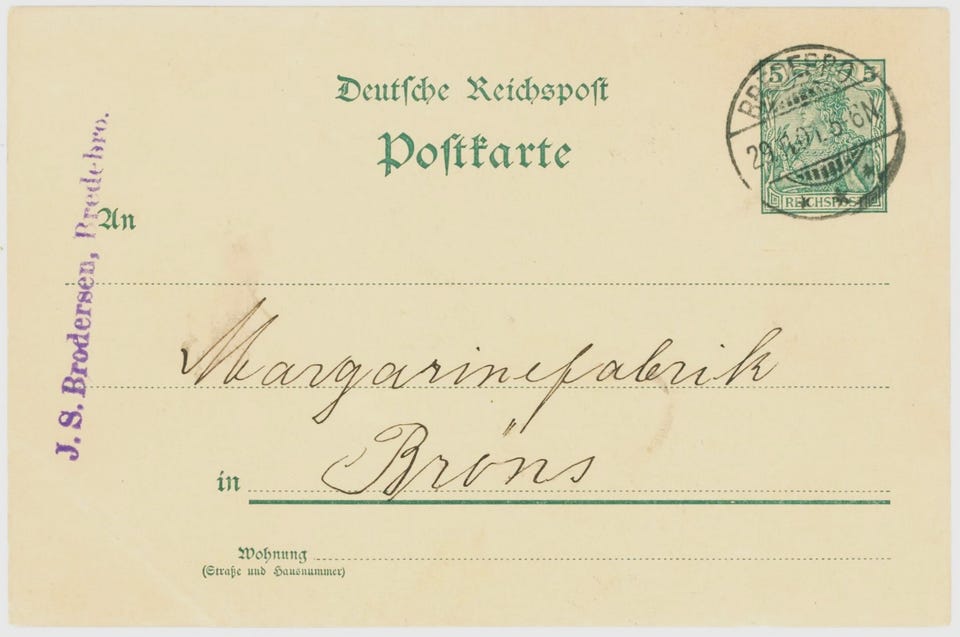 Deutsche Reichspost
Postkarte
5 5
BREDEBRO
5-6N.
REICHSPOST
J. S. Brodersen, Bredebro.
An
Margarinefabrik
in Bröns
Wohnung
(Straße und Hausnummer)